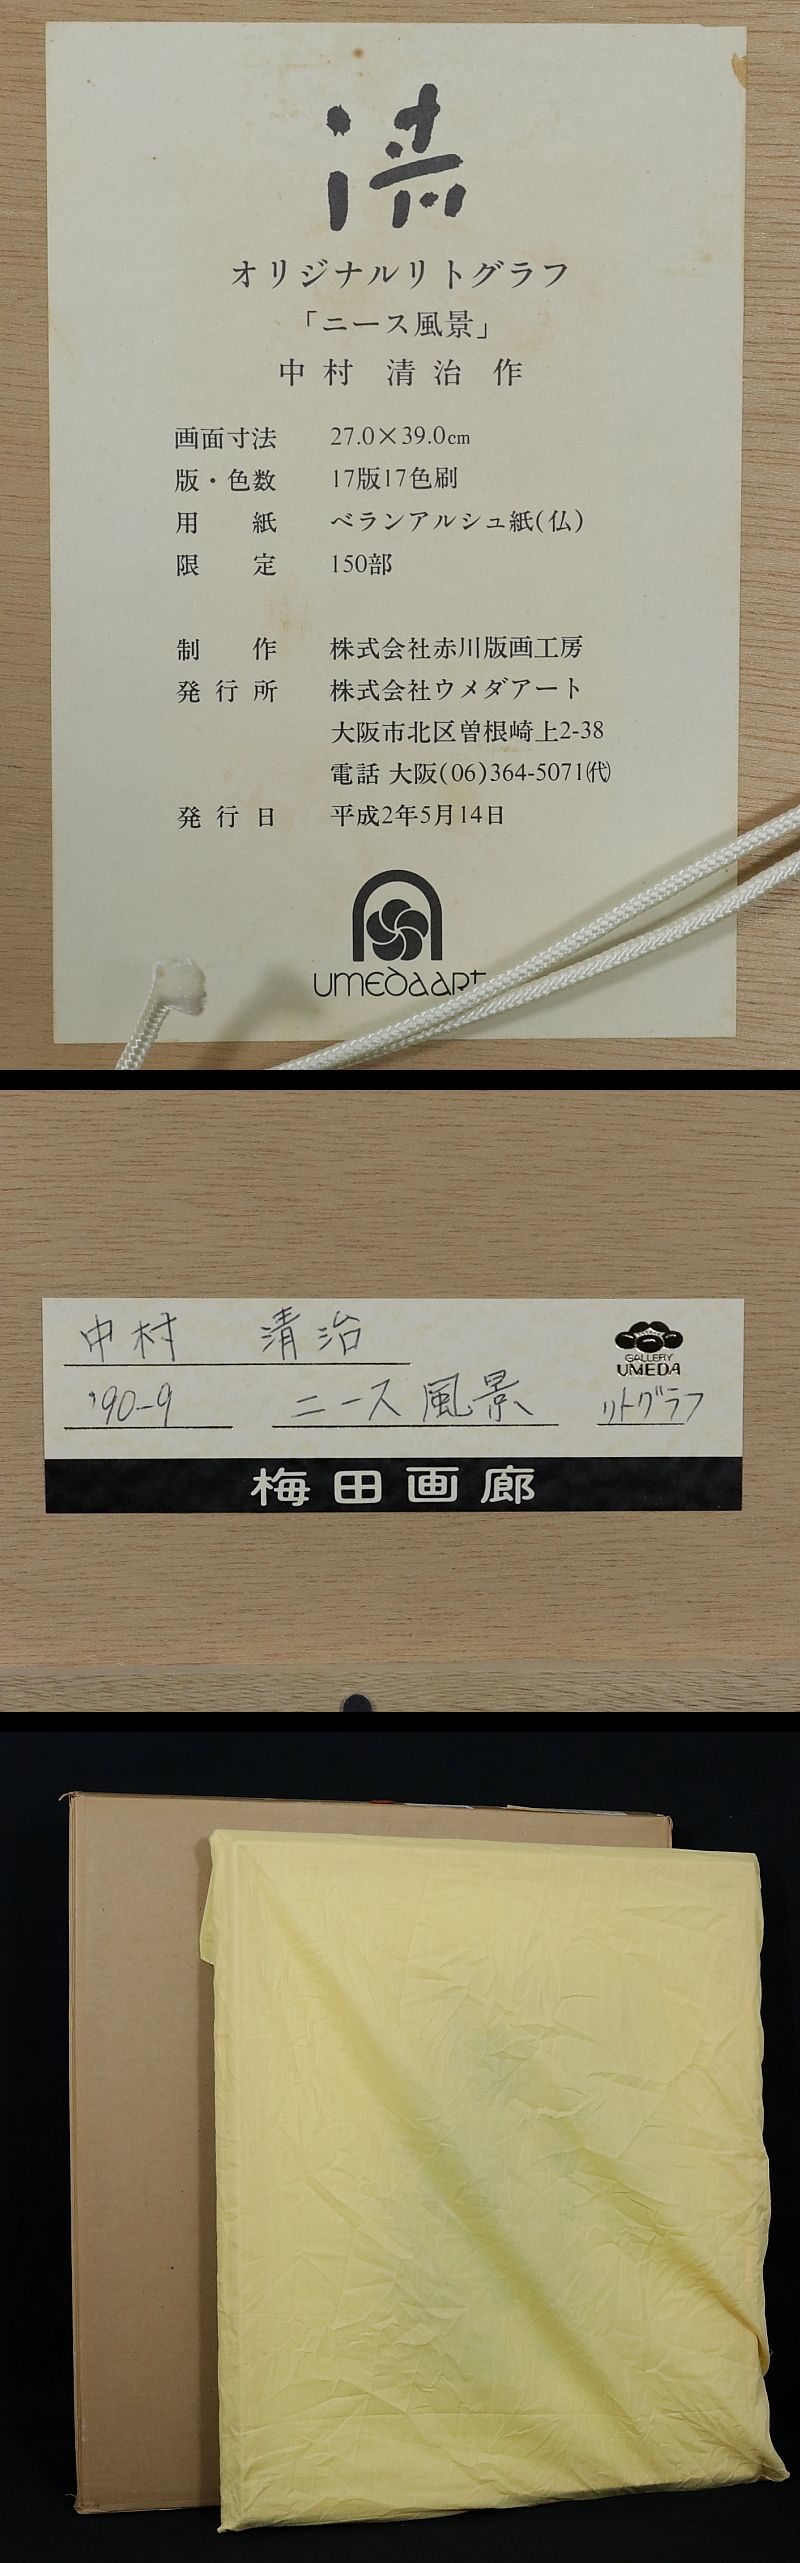 オリジナルリトグラフ
「ニース風景」
中村 清治 作
画面寸法 27.0×39.0cm
版・色数 17版17色刷
用 紙 ベランアルシュ紙(仏)
限 定 150部
制 作 株式会社赤川版画工房
発行所 株式会社ウメダアート
大阪市北区曽根崎上2-38
電話 大阪(06)364-5071㈹
発行日 平成2年5月14日
UMEDAART
中村 清治
GALLERY
UMEDA
'90-9 ニース風景 リトグラフ
梅田画廊